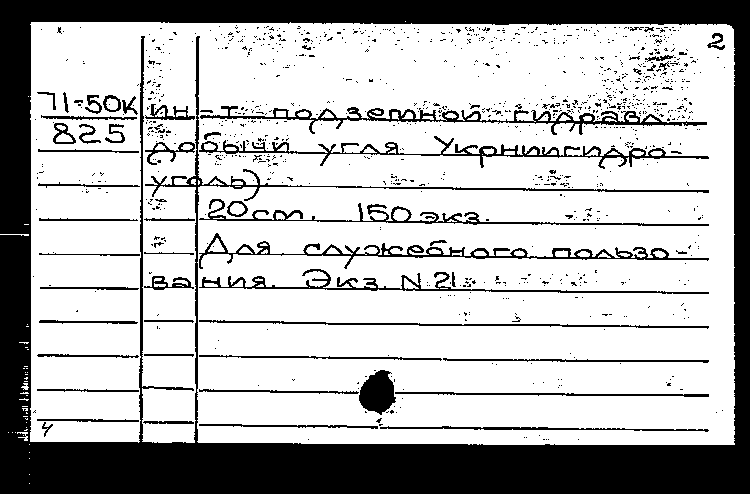 2
71-50к ин-т подземной гидравл.
825 добычи угля Укрниигидро-
уголь).
20 ст. 150 экз.
Для служебного пользо-
вания. Экз. N 21.
4